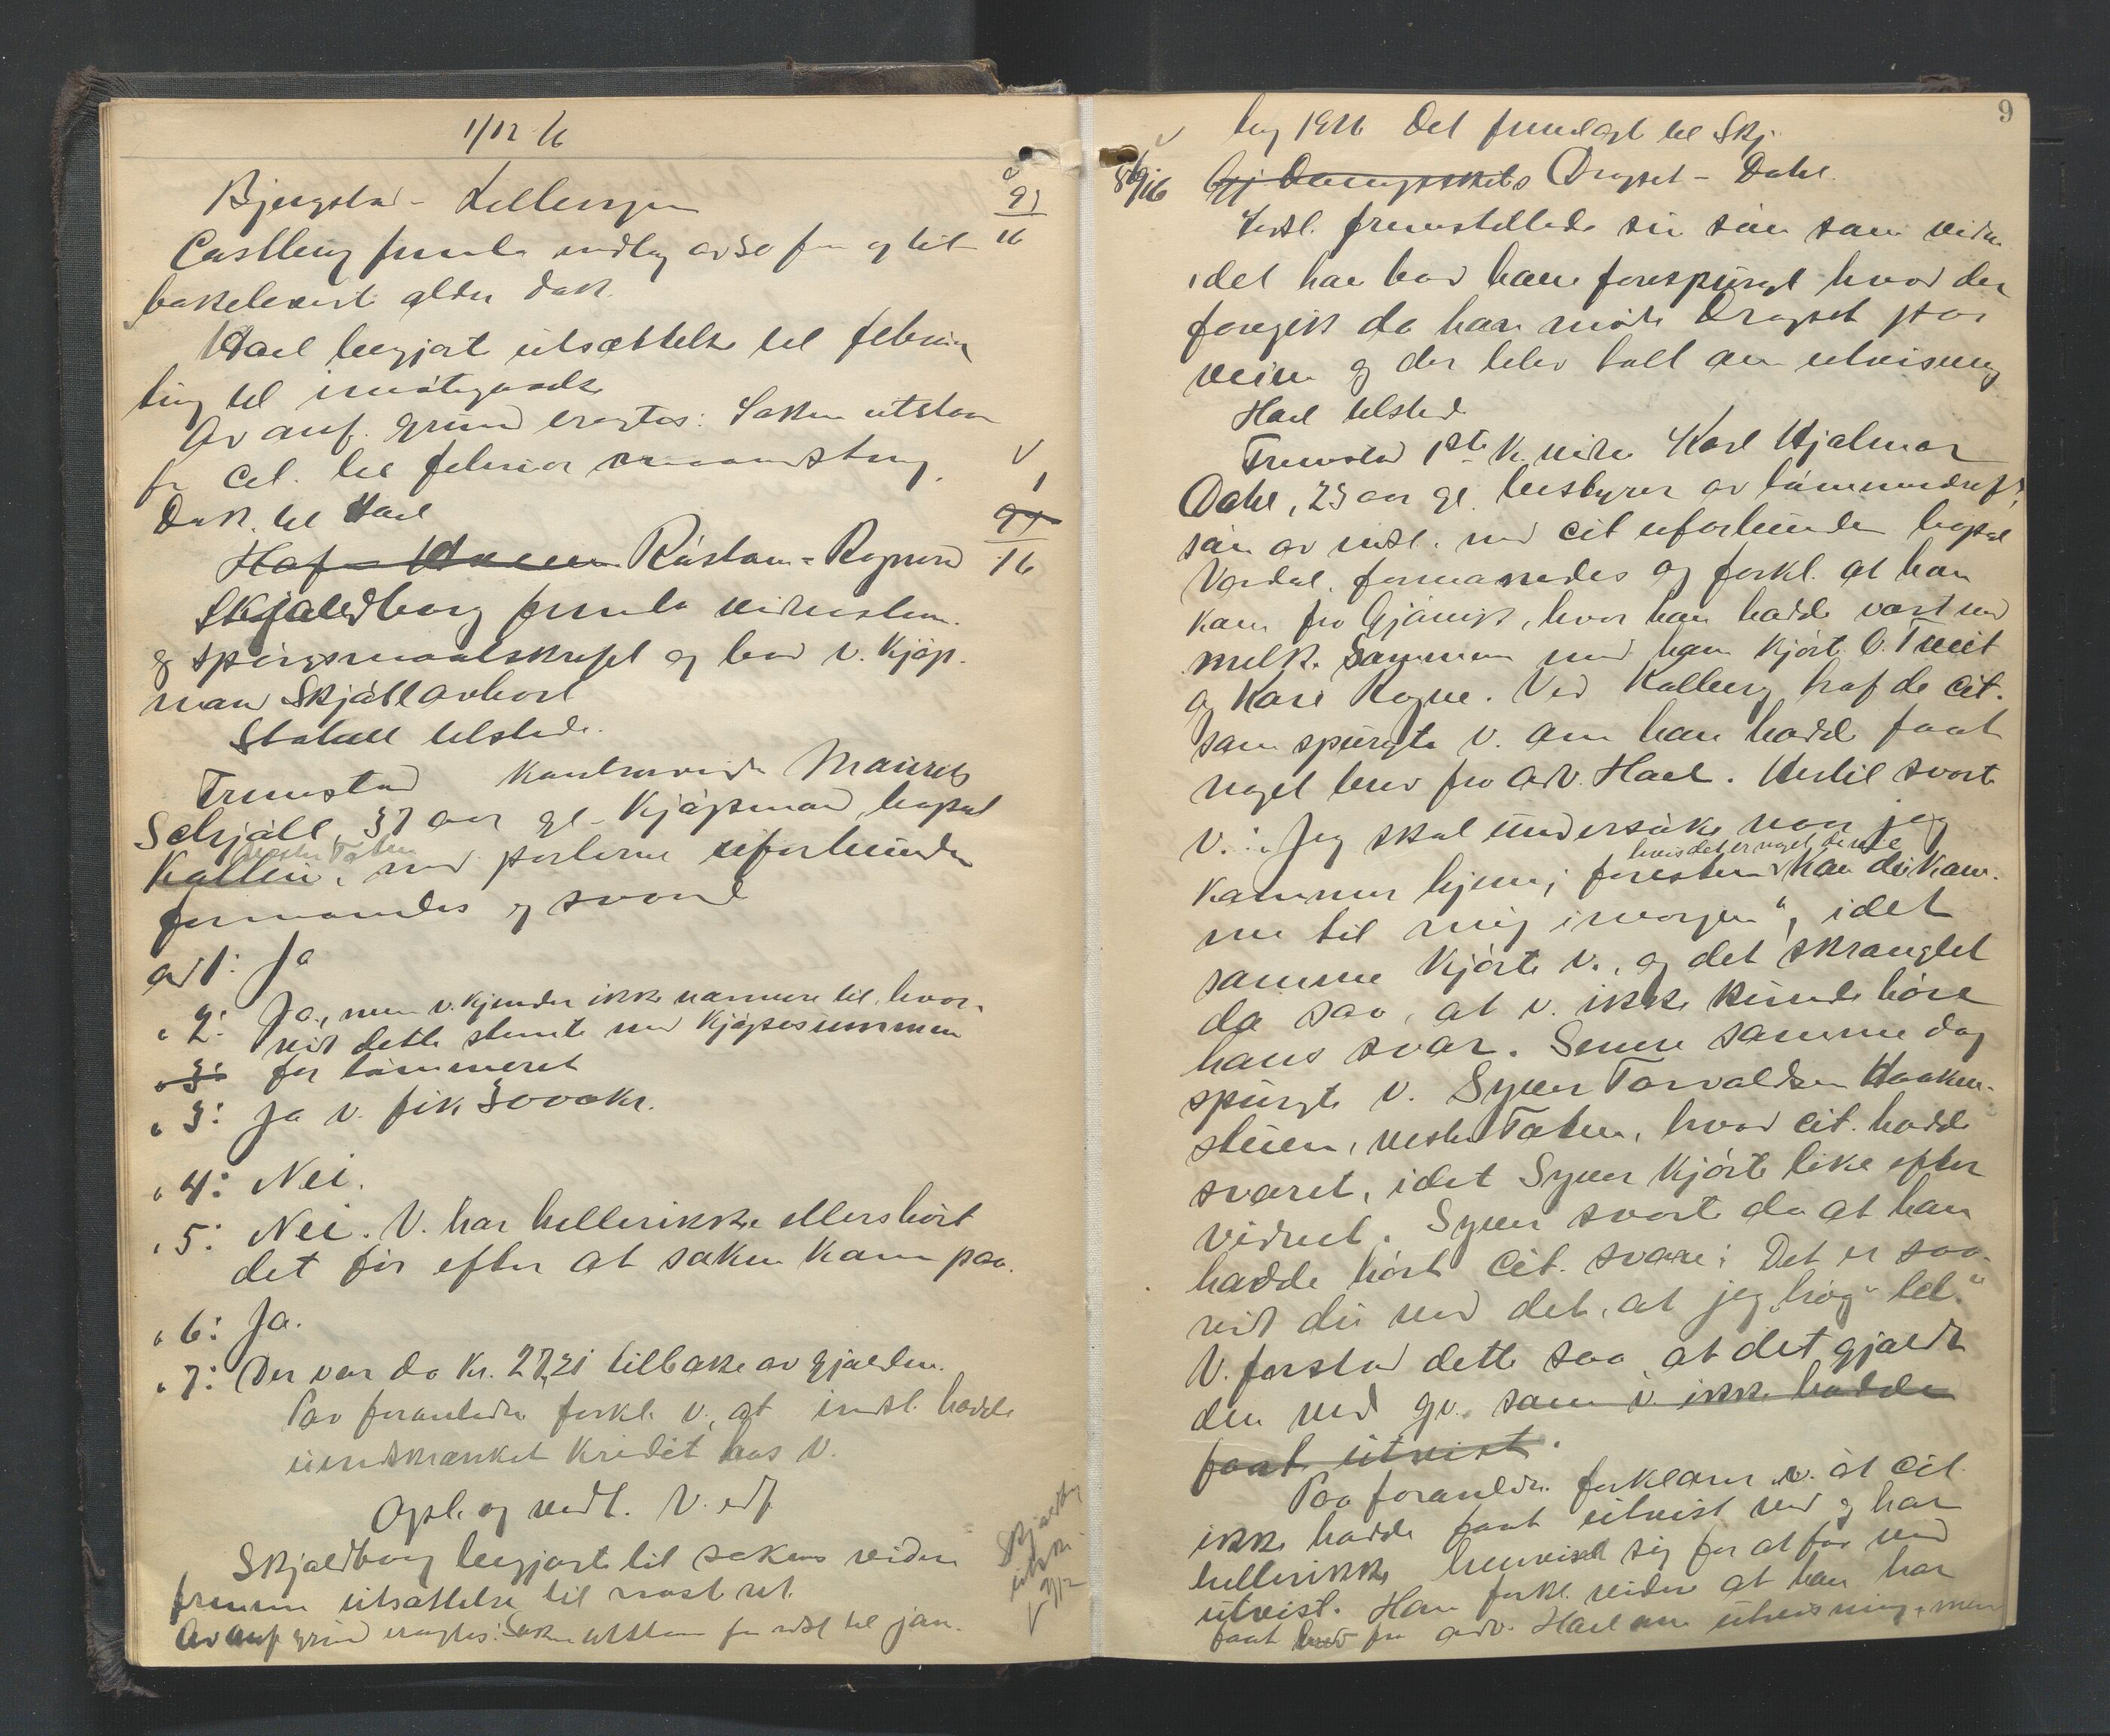 1/12 16
Bjergstad - Lillengen
91
16
Castberg fremla indlæg av 30 f. m. og til
bakeleverte ældre dok.
Hael begjærte utsættelse til februar
ting til imøtegaaelse
Av anf. grund eragtes: Saken utstaar
fr cit. til februar maanedsting.
Dok. til Hael
Røstøen - Rognerud
1
91
16
Skjaldborg fremla vidnestevn.
og spørsmaalskrift og bad v. Kjøp-
mand Skjåll avhørt
tilstede.
Fremstod kontravidne Maurits
Schjåll, 37 aar gl. Kjøpmand, bopæl
Vestre Toten
Kallen, med parterne uforbunden
formanedes og svared
ad 1: Ja
" 2: Ja, men v. kjender ikke nærmere til, hvor-
vidt dette stemte med Kjøpesummen
" 3: for tømmeret
" 3: Ja v. fik 3000 kr.
" 4: Nei.
" 5: Nei. V. har hellerikke ellers hørt
det før efter at saken kom paa.
" 6: Ja.
" 7: Der var da Kr. 27,21 tilbake av gjælden.
Paa foranledn. forkl. v., at indst. hadde
uindskrænket Kredit hos V.
Opl. og vedt. V. edf.
Skjaldborg begjærte til sakens videre
fremme utsættelse til næste ret.
Av anf. grund eragtes: Saken utstaar for indst til jan.
Skjaldborg
utskr.
2/12
9
ting 1916 Det fremlagt til Skj.
56/16 Dragset - Dahl.
Indst. fremstillede sin søn som vidne
idet han bad ham forespurgt hvad der
foregik da han møtte Dragset paa
veien og der blev talt om utvisning
Hael tilstede
Fremstod 1ste K. vidne Karl Hjalmar
Dahl, 23 aar gl. bestyrer av tømmerdrift,
søn av indst. med cit uforbunden bopæl
Vardal. formanedes og forkl. at han
kom fra Gjøvik, hvor han hadde vært med
melk. Sammen med ham kjørte O. Tveit
og Kari Rogne. Ved Kallerg traf de cit.
som spurgte v. om han hadde faat
noget brev fra adv. Hael. Hertil svarte
v.: "Jeg skal undersøke naar jeg
hvis det er noget dermed
kommer hjem; foresten kan du kom-
me til mig imorgen", idet
samme kjørte v., og det skranglet
da saa, at v. ikke kunde høre
hans svar. Senere samme dag
spurgte v. Syver Torvaldsen Haaken-
stuen, vestre Toten, hvad cit. hadde
svaret, idet Syver kjørte like efter
vidnet. Syver svarte da at han
hadde hørt cit. svare: "Det er saa-
vidt du ved det, at jeg "høg" lel."
V. forstod dette saa, at det gjaldt
den ved gv. som v. ikke hadde
faat utvist.
Paa foranledn. forklarer v. at cit.
ikke hadde faat utvist ved og har
hellerikke henvendt sig for at faa ved
utvist. Han forkl. videre at han har
faat brev fra adv. Hael om utvisning, men